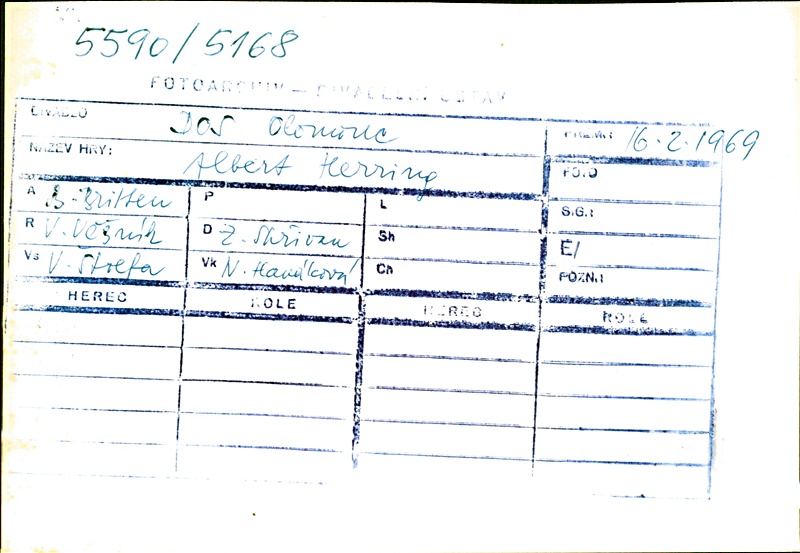 5590/5168
FOTOARCHIV — DIVADELNÍ ÚSTAV
DIVADLO DOS Olomouc PREM.: 16.2.1969
NÁZEV HRY: Albert Herring FOTO
A B. Britten P L SIG.:
R V. Věžník D Z. Skřivan Sh É/
Vs V. Štolfa Vk N. Hanáková Ch POZN.:
HEREC ROLE HEREC ROLE